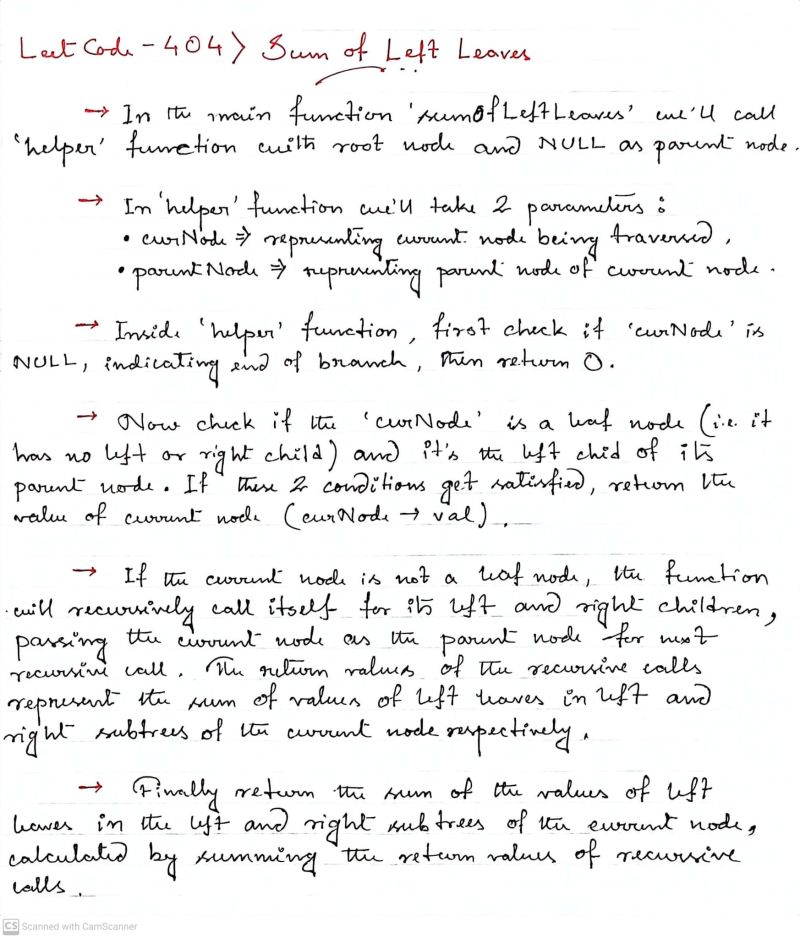 LeetCode - 404> Sum of Left Leaves
→ In the main function 'sumOfLeftLeaves' we'll call
'helper' function with root node and NULL as parent node.
→ In 'helper' function we'll take 2 parameters :
• curNode ⇒ representing current node being traversed.
• parentNode ⇒ representing parent node of current node.
→ Inside 'helper' function, first check if 'curNode' is
NULL, indicating end of branch, then return 0.
→ Now check if the 'curNode' is a leaf node (i.e. it
has no left or right child) and it's the left chid of its
parent node. If these 2 conditions get satisfied, return the
value of current node (curNode → val).
→ If the current node is not a leaf node, the function
will recursively call itself for its left and right children,
passing the current node as the parent node for next
recursive call. The return values of the recursive calls
represent the sum of values of left leaves in left and
right subtrees of the current node respectively.
→ Finally return the sum of the values of left
leaves in the left and right subtrees of the current node,
calculated by summing the return values of recursive
calls.
CS Scanned with CamScanner